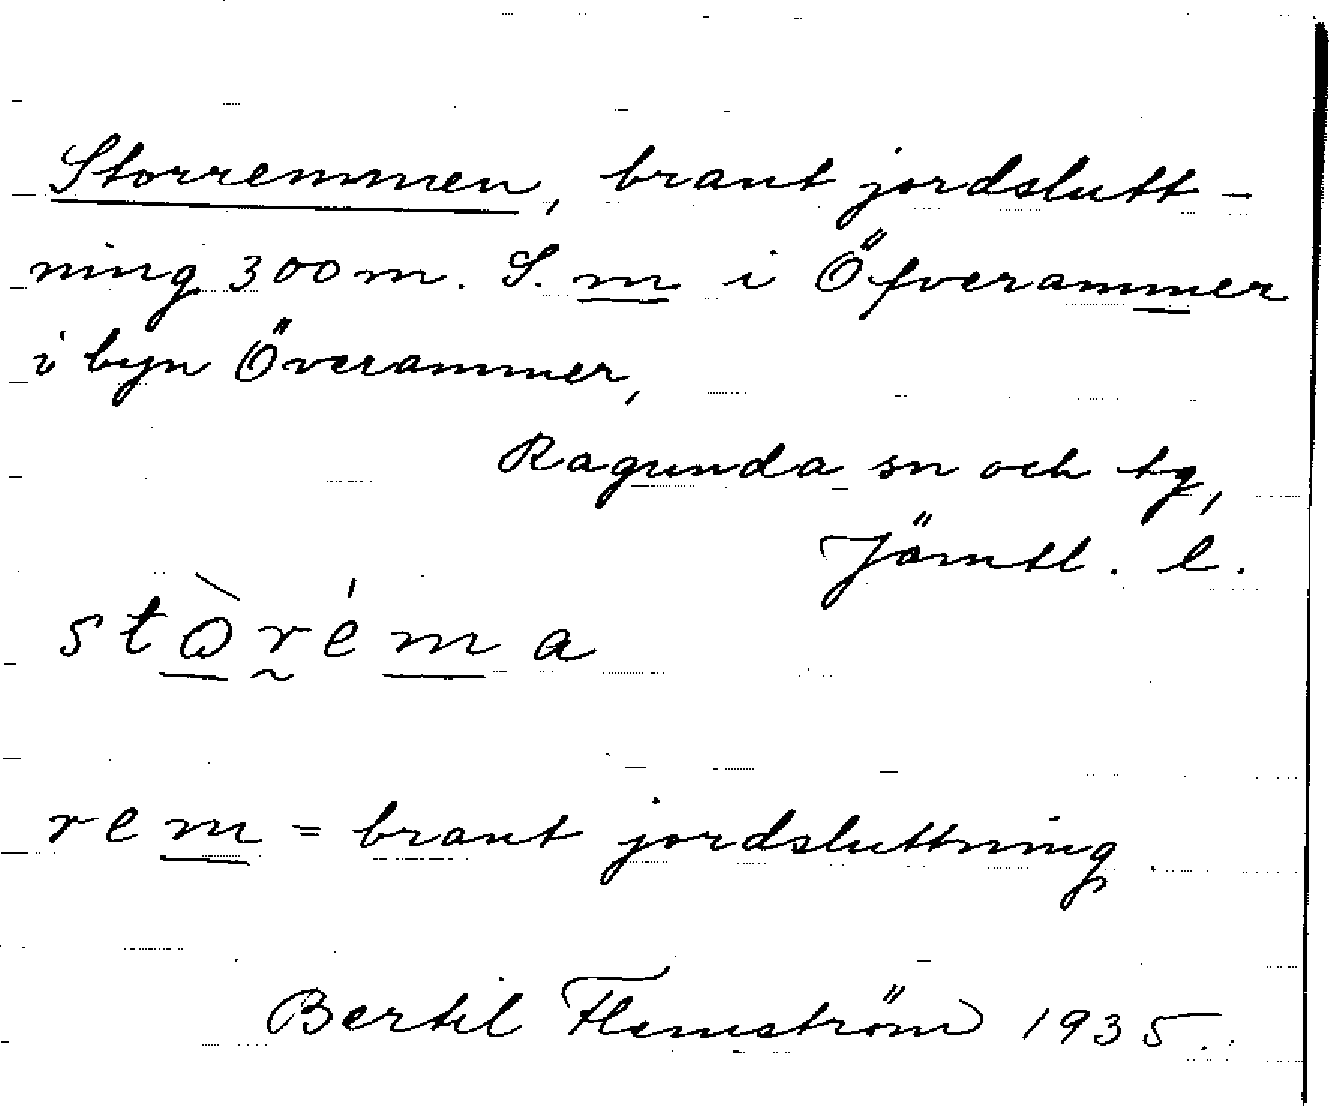 Storremmen, brant jordslutt-
ning 300 m. S. m i Öfverammer
i byn Överammer,
Ragunda sn och tg,
Jämtl. l.
stòréma
rem = brant jordsluttning.
Bertil Flemström 1935.